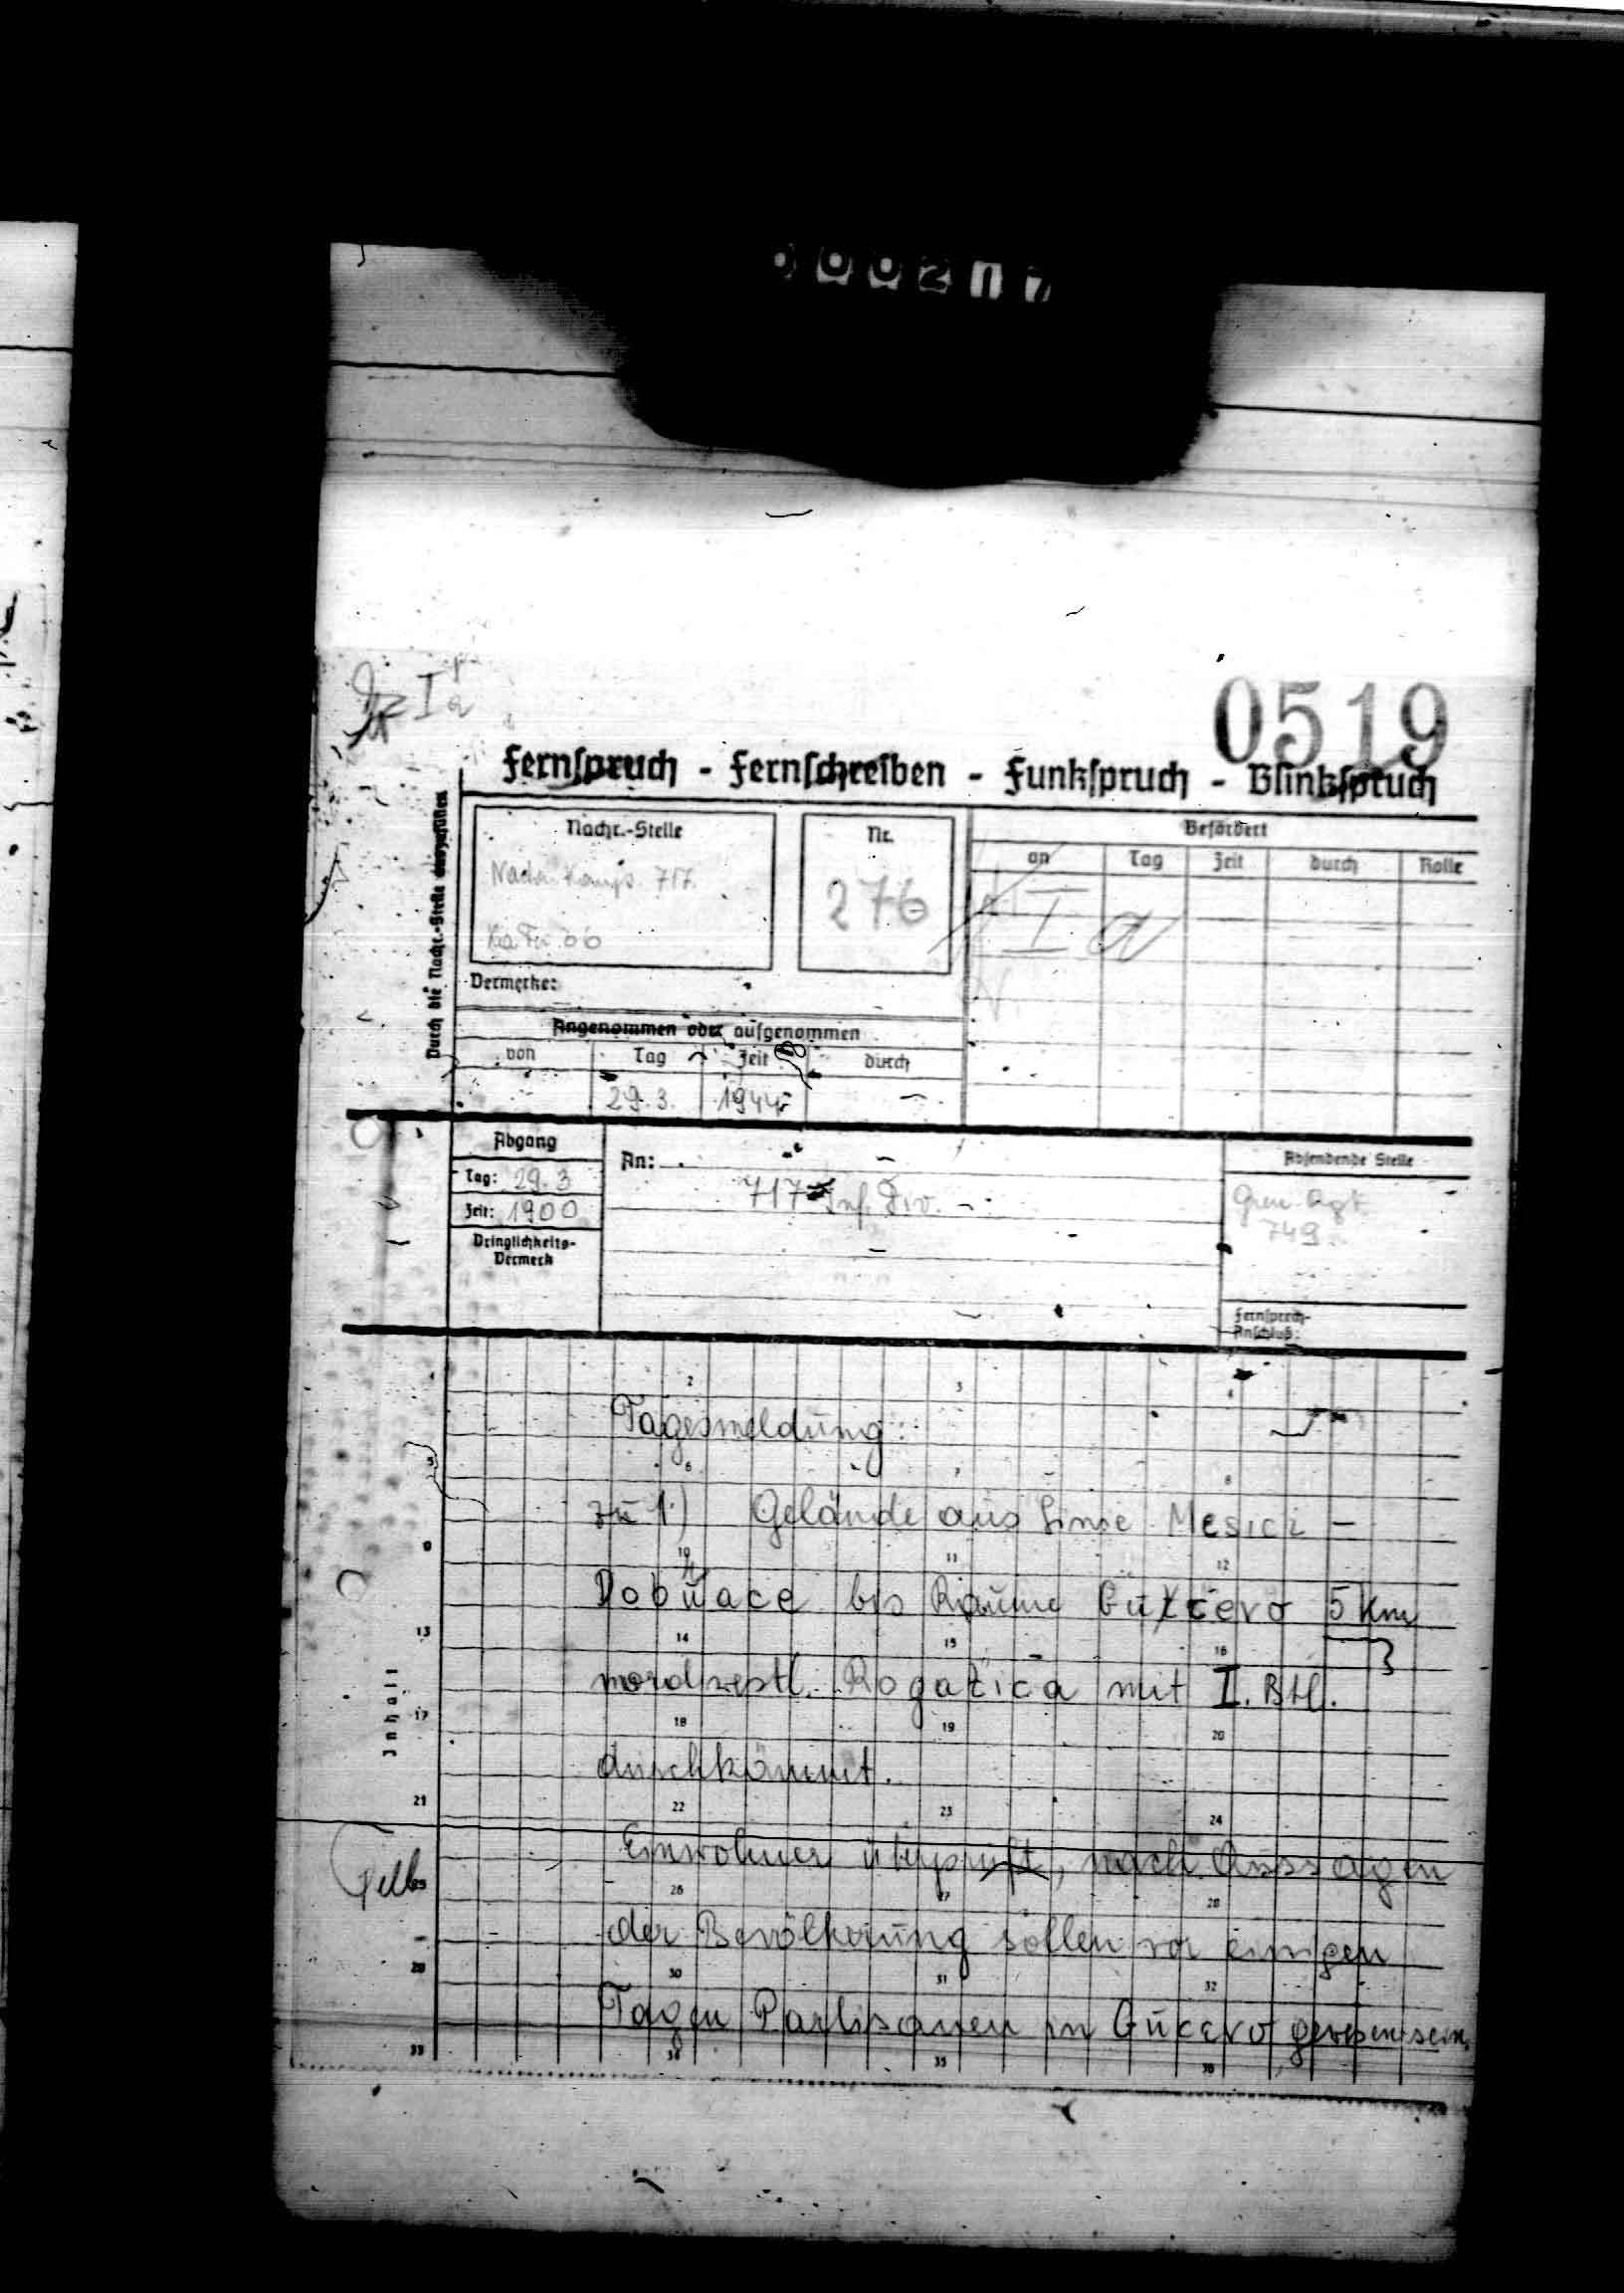 000217
Ia
0519
Fernspruch - Fernschreiben - Funkspruch - Blinkspruch
Durch die Nachr.-Stelle auszufüllen
Nachr.-Stelle
Nachr. Komp. 717
Nr.
276
Befördert
an
Tag
Zeit
durch
Rolle
Ia
Vermerke:
Angenommen oder aufgenommen
von
Tag
Zeit
durch
29.3.
1944
Abgang
Tag: 29.3
Zeit: 1900
Dringlichkeits-
Vermerk
An:
717 Inf. Div. -
Absendende Stelle
Gren. Rgt.
749
Fernsprech-
Anschluß:
Inhalt
2 3 4
Tagesmeldung:
5 6 7 8
zu 1.) Gelände aus Linie Mesici -
9 10 11 12
Dobrace bis Raume Gučevo 5 km
13 14 15 16
nordwestl. Rogatica mit I. Btl.
17 18 19 20
durchkämmt.
21 22 23 24
Einwohner überprüft, nach Aussagen
26 27 28
der Bevölkerung sollen vor einigen
29 30 31 32
Tagen Partisanen in Gučevo gewesen sein.
33 34 35 36